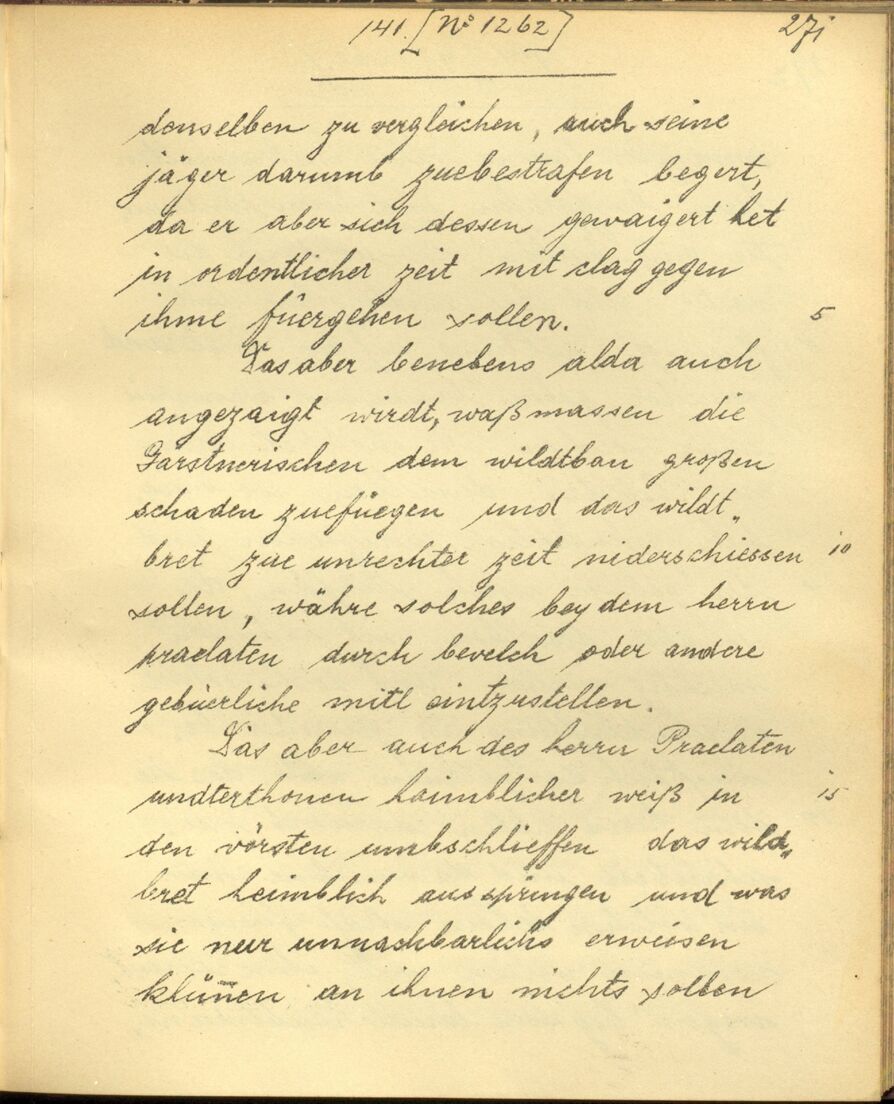 141 [No 1262] 271
denselben zu vergleichen, auch seine
jäger darumb zuebestrafen begert,
da er aber sich dessen gewaigert het
in ordentlicher zeit mit clag gegen
ihme füergehen sollen. 5
Das aber benebens alda auch
angezaigt wirdt, waßmassen die
Gärstnerischen dem wildtban großen
schaden zuefüegen und das wildt„
bret zue unrechter zeit niderschiessen 10
sollen, währe solches bey dem herrn
praelaten durch bevelch oder andere
gebüerliche mitl eintzustellen.
Das aber auch des herrn Praelaten
undterthonen haimblicher weiß in 15
den vörsten umbschlieffen das wild„
bret heimblich ausspringen und was
sie nur unnachbarlichs erweisen
khünen an ihnen nichts sollen